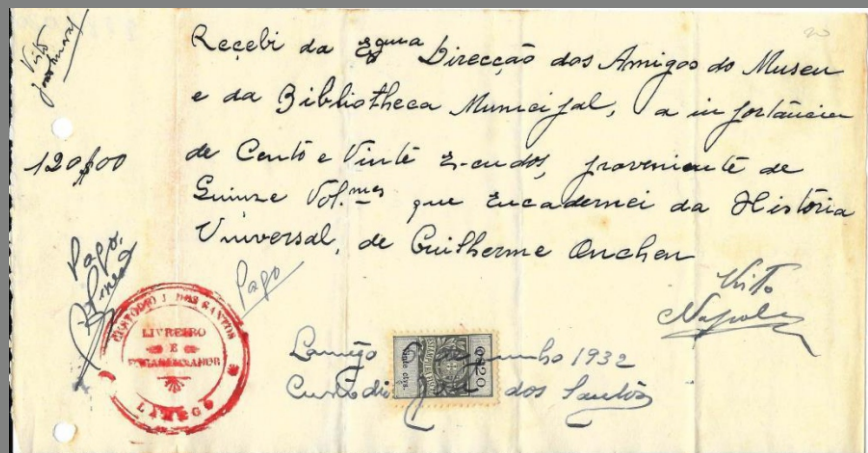 Visto
Recebi da Exma Direcção dos Amigos do Museu
e da Bibliotheca Municipal, a importância
120$00
de Cento e Vinte Escudos, proveniente de
Quinze Vol.mes que Encadernei da História
Universal, de Guilherme Onchen
Pago.
Pago
Visto
Napoles
CUSTODIO J. DOS SANTOS
LIVREIRO
E
ENCADERNADOR
LAMEGO
0$20
Lamego de Junho 1932
Custodio José dos Santos